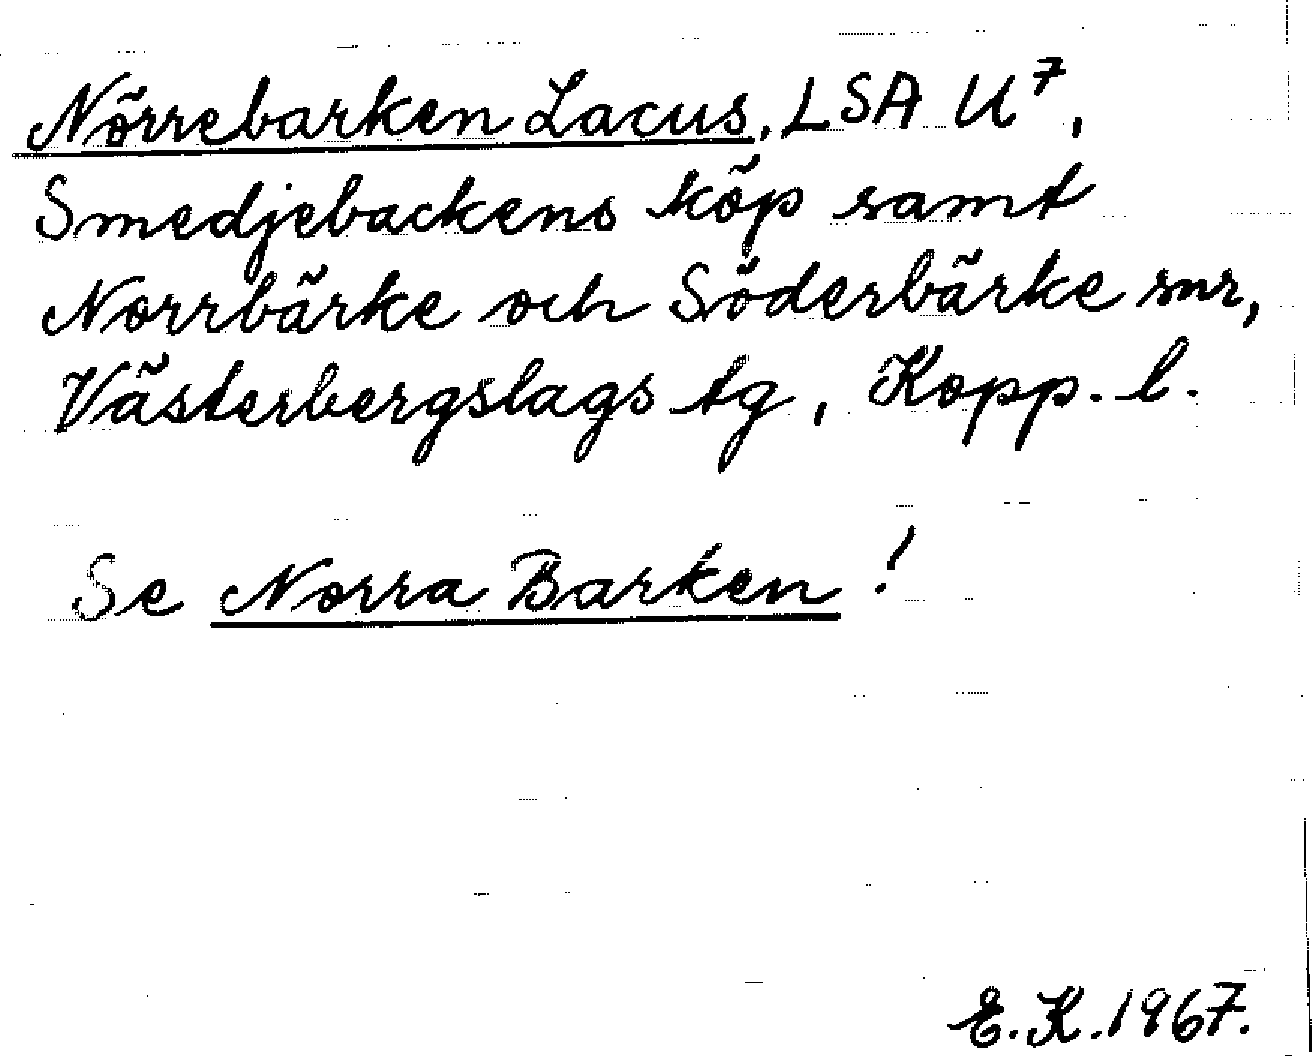 Nörrebarken Lacus, LSA U⁷,
Smedjebackens köp samt
Norrbärke och Söderbärke snr,
Västerbergslags tg, Kopp. l.
Se Norra Barken!
E.K. 1967.